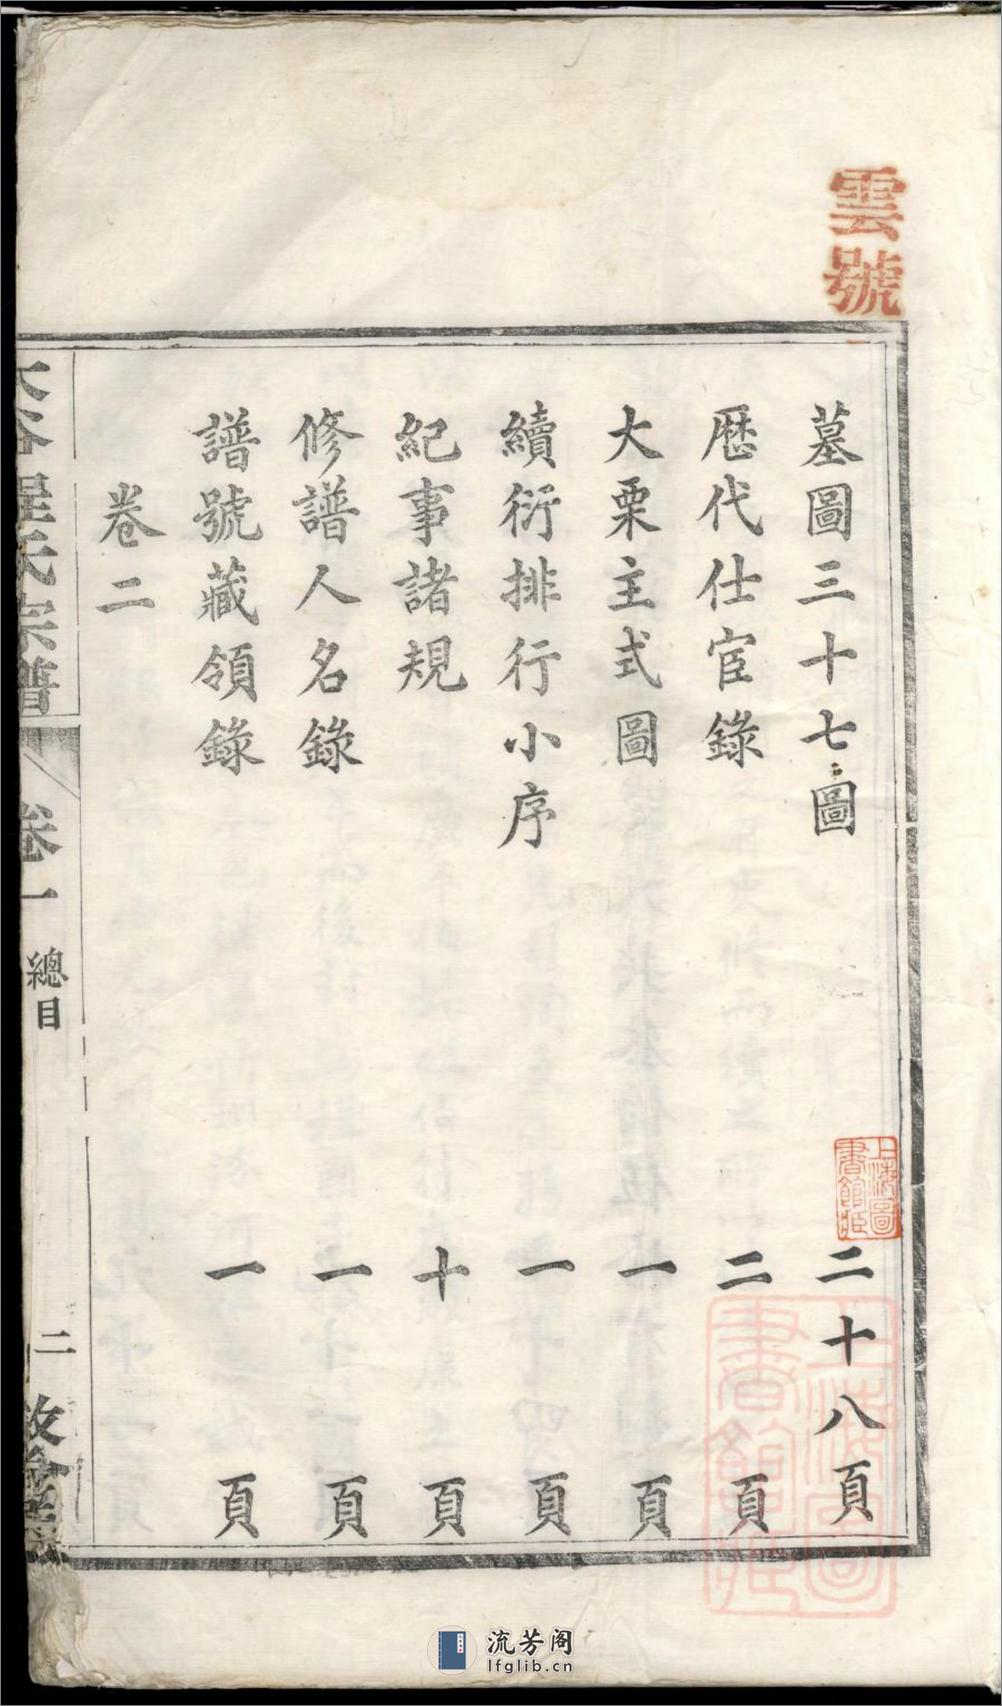 雲號
墓圖三十七圖 二十八頁
歷代仕宦錄 二頁
大栗主式圖 一頁
續衍排行小序 一頁
紀事諸規 十頁
修譜人名錄 一頁
譜號藏領錄 一頁
卷二
程氏宗譜 卷一 總目 二
上海圖書館藏
上海圖書館藏
流芳阁
lfglib.cn